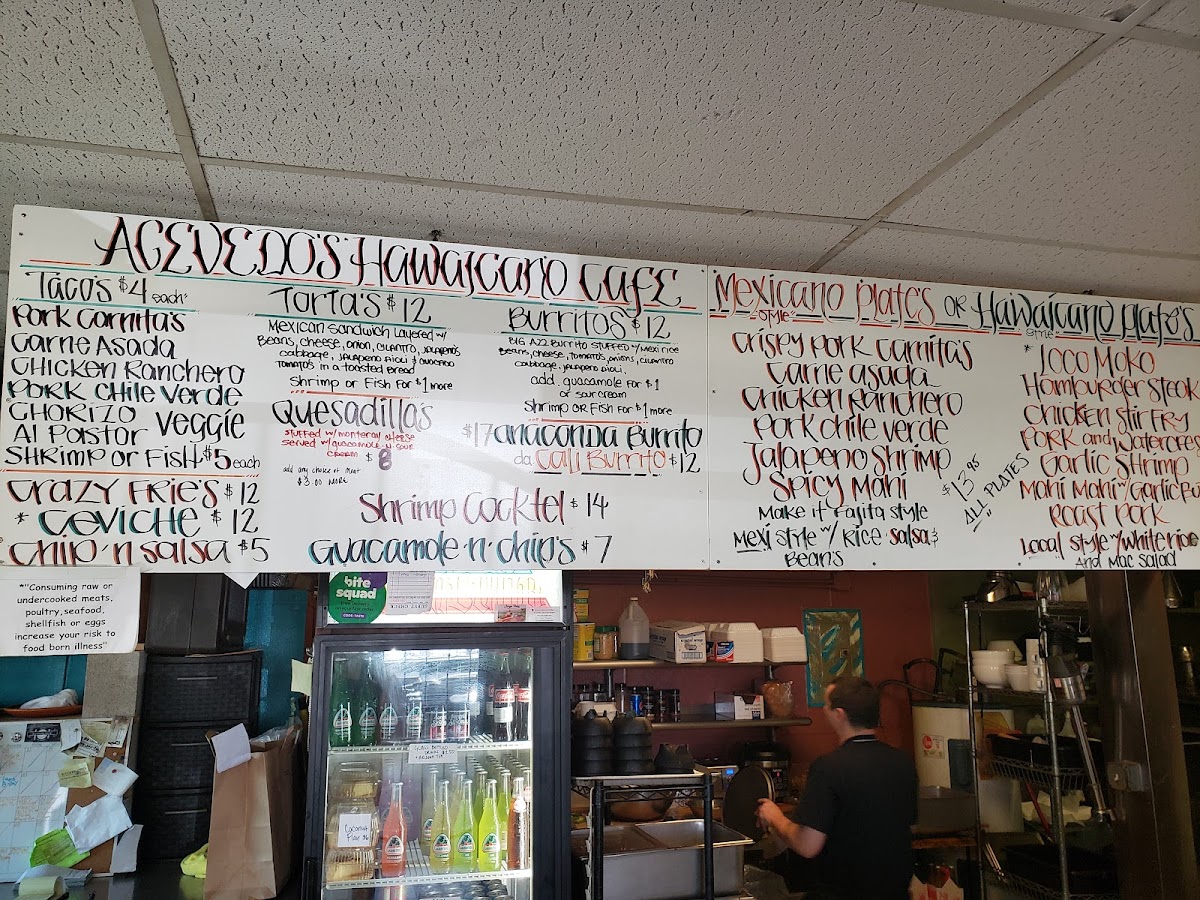 ACEVEDO'S HAWAICANO CAFE
TACO'S $4 each
Pork Carnita's
Carne Asada
CHICKEN RANCHERO
PORK CHILE VERDE
CHORIZO VEGGIE
Al Pastor
SHRIMP or FISH $5 each
CRAZY FRIE'S $12
* CEVICHE $12
CHIP 'n SALSA $5
TORTA'S $12
MEXICAN SANDWICH LAYERED w/
BEANS, CHEESE, ONION, CILANTRO, JALAPEÑO'S
CABBAGE, JALAPEÑO AIOLI & AVOCADO
TOMATO'S IN a TOASTED BREAD
Shrimp or Fish For $1 more
QUESADILLA'S
STUFFED w/ monteray cheese
served w/ guacamole n sour
cream $8
add any choice of meat
$3.00 more
BURRITOS $12
BIG AZZ BURRITO STUFFED w/ mexi rice
Beans, cheese, tomato's, onions, cilantro
cabbage, jalapeno aioli,
add guacamole for $1
or sour cream
Shrimp OR Fish for $1 more
$17 anaconda Burrito
da Cali Burrito $12
Shrimp Cocktel $14
Guacamole 'n' Chip's $7
Mexicano Plate's OR Hawaicano Plate's
STYLE
STYLE
Crispy Pork Carnita's
Carne asada
Chicken Ranchero
Pork chile verde
Jalapeno Shrimp
Spicy Mahi
Make it Fajita style
Mexi style w/ Rice salsa &
Bean's
$13.95
ALL PLATES
* LOCO MOKO
Hamburger Steak
Chicken Stir Fry
PORK and Watercress
Garlic Shrimp
Mahi Mahi w/ Garlic Bu
Roast Pork
Local style w/ white rice
And Mac Salad
*"Consuming raw or
undercooked meats,
poultry, seafood,
shellfish or eggs
increase your risk to
food born illness"
bite
squad
Coconut
Flan